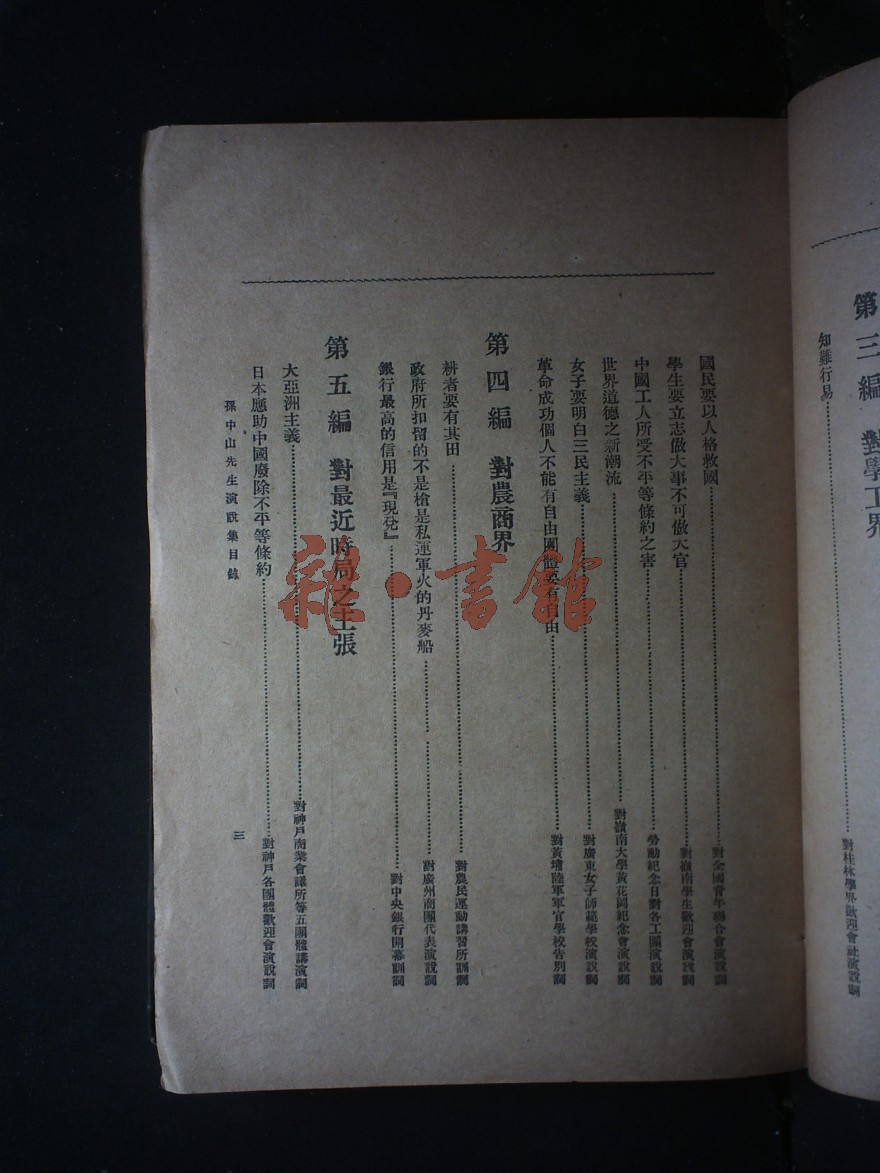 第三編　對學工界
知難行易……對桂林學界歡迎會社演說詞
國民要以人格救國……對全國靑年聯合會演說詞
學生要立志做大事不可做大官……對嶺南學生歡迎會演說詞
中國工人所受不平等條約之害……勞動紀念日對各工團演說詞
世界道德之新潮流……對嶺南大學黃花岡紀念會演說詞
女子要明白三民主義……對廣東女子師範學校演說詞
革命成功個人不能有自由團體要有自由……對黃埔陸軍軍官學校告別詞
第四編　對農商界
耕者要有其田……對農民運動講習所訓詞
政府所扣留的不是槍是私運軍火的丹麥船……對廣州商團代表演說詞
銀行最高的信用是『現兌』……對中央銀行開幕訓詞
第五編　對最近時局之主張
大亞洲主義……對神戶商業會議所等五團體講演詞
日本應助中國廢除不平等條約……對神戶各團體歡迎會演說詞
孫中山先生演說集目錄
三
雜·書館